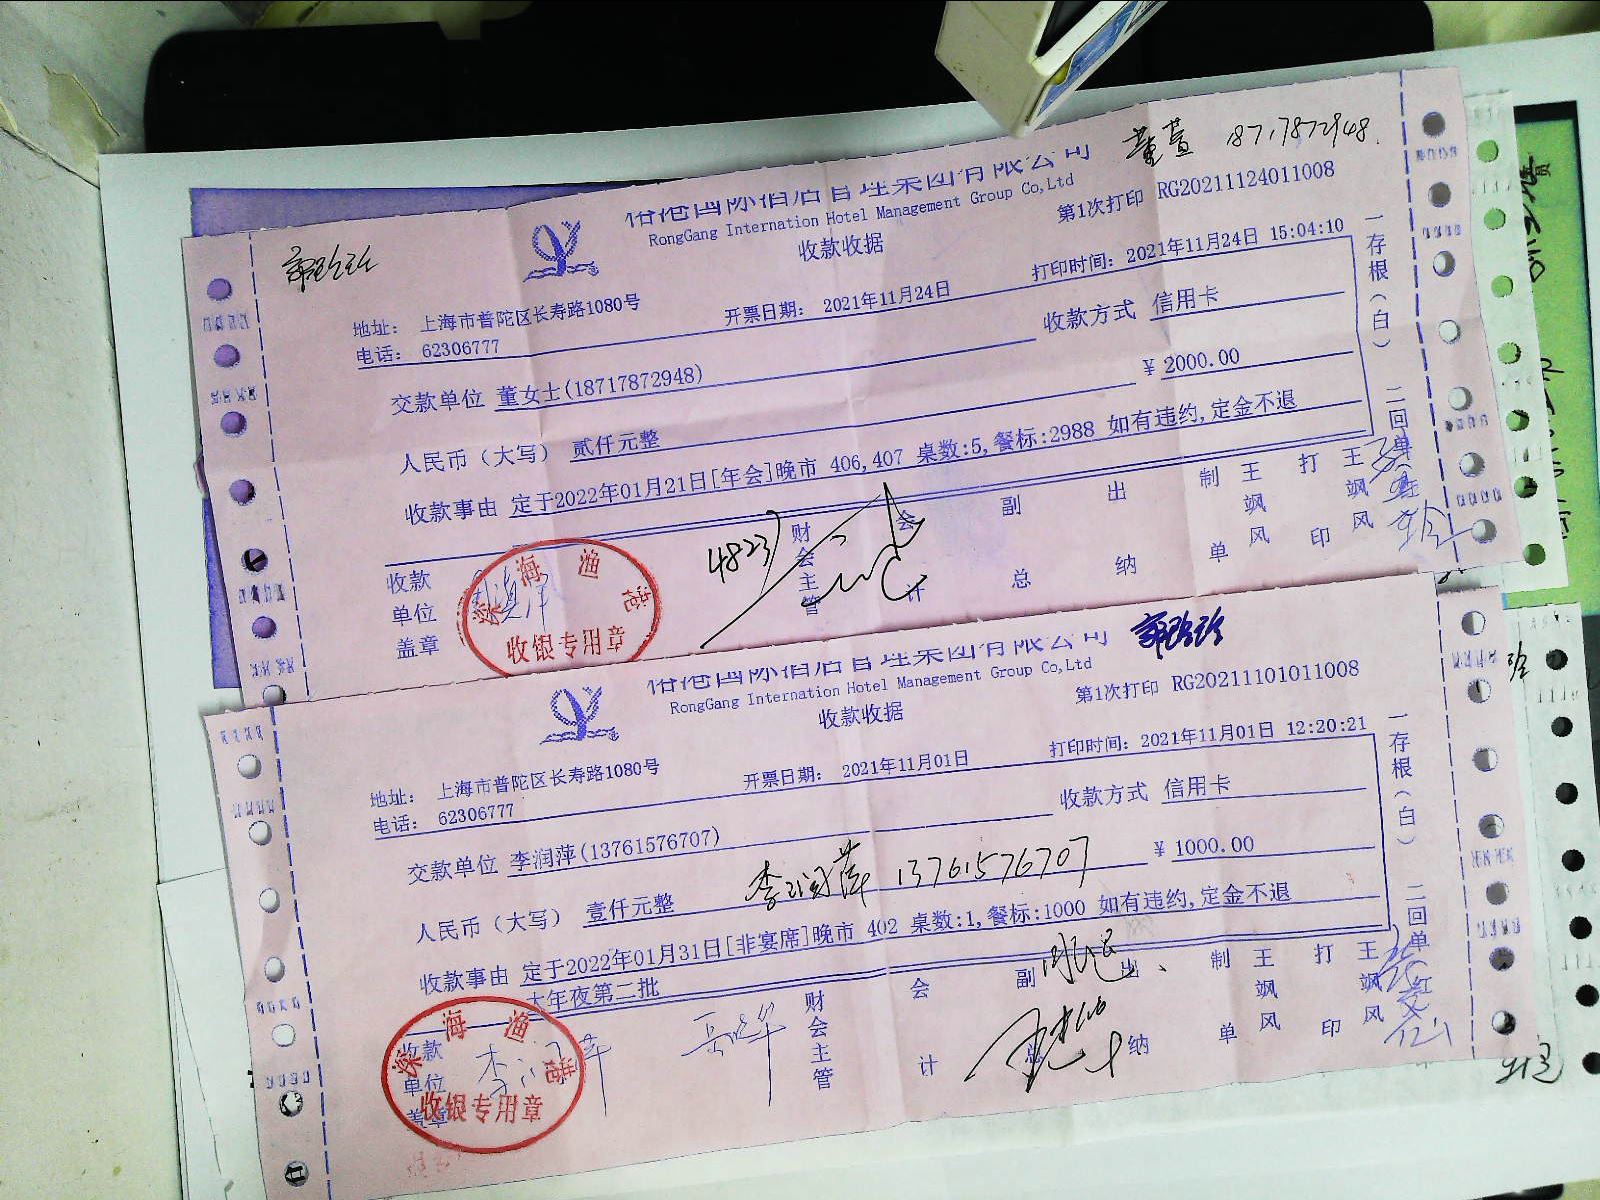 董萱 18717872948.
RongGang International Hotel Management Group Co,Ltd
收款收据
第1次打印 RG20211124011008
地址: 上海市普陀区长寿路1080号
电话: 62306777
开票日期: 2021年11月24日
打印时间: 2021年11月24日 15:04:10
交款单位 董女士(18717872948)
收款方式 信用卡
人民币(大写) 贰仟元整
¥ 2000.00
收款事由 定于2022年01月21日[年会]晚市 406,407 桌数:5,餐标:2988 如有违约,定金不退
一存根(白) 二回单
收款单位盖章
财会主管
会计
副总
出纳
制单
王飒风
打印
王飒风
4823
深海渔港
收银专用章
RongGang International Hotel Management Group Co,Ltd
收款收据
第1次打印 RG20211101011008
地址: 上海市普陀区长寿路1080号
电话: 62306777
开票日期: 2021年11月01日
打印时间: 2021年11月01日 12:20:21
交款单位 李润萍(13761576707)
收款方式 信用卡
人民币(大写) 壹仟元整
李润萍 13761576707
¥ 1000.00
收款事由 定于2022年01月31日[非宴席]晚市 402 桌数:1,餐标:1000 如有违约,定金不退
大年夜第二批
一存根(白) 二回单
收款单位盖章
财会主管
会计
副总
出纳
制单
王飒风
打印
王飒风
深海渔港
收银专用章